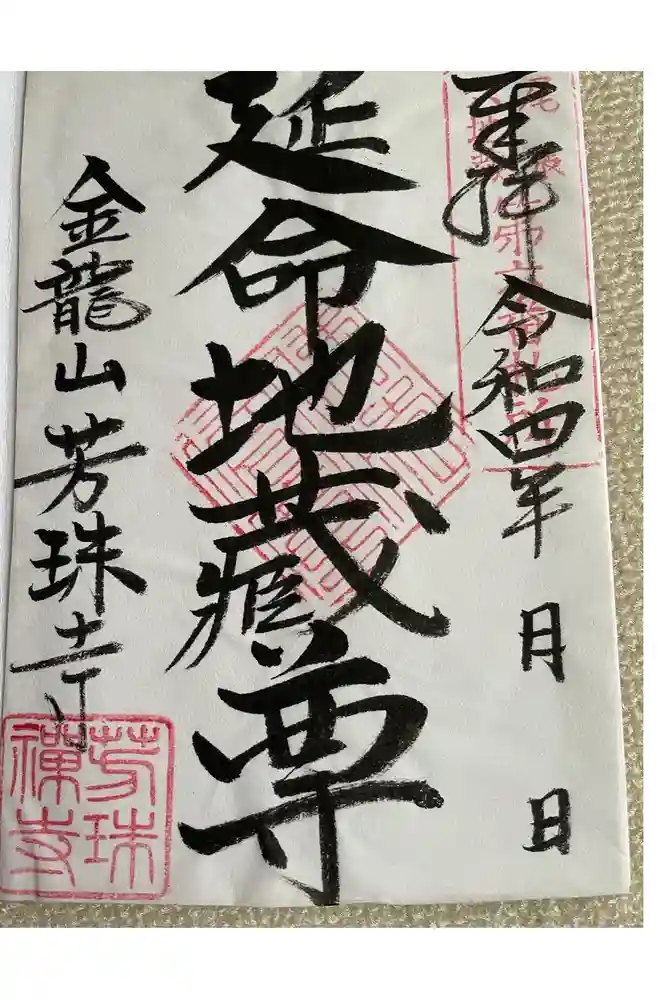 奉拝 令和四年 月 日
延命地蔵尊
金龍山芳珠寺
芳珠禅寺